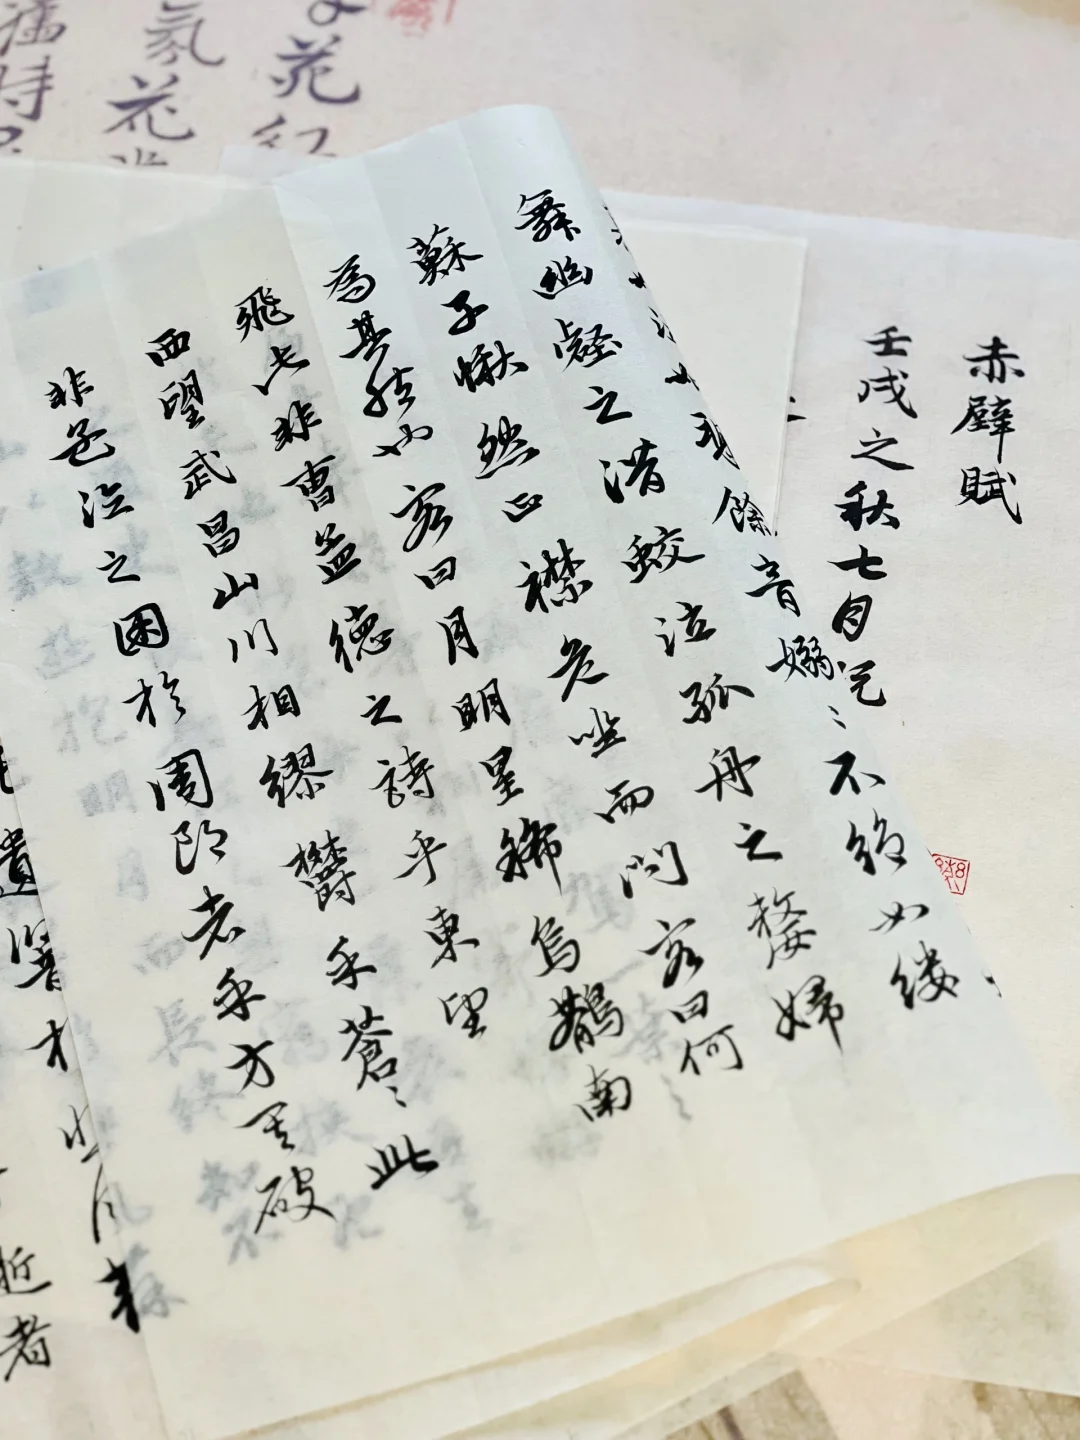 赤壁賦
壬戌之秋七月既
餘音嫋〻不絕如縷
舞幽壑之潛蛟泣孤舟之嫠婦
蘇子愀然正襟危坐而問客曰何
為其然也客曰月明星稀烏鵲南
飛此非曹孟德之詩乎東望
西望武昌山川相繆鬱乎蒼〻此
非孟德之困於周郎者乎方其破
遺響於
逝者